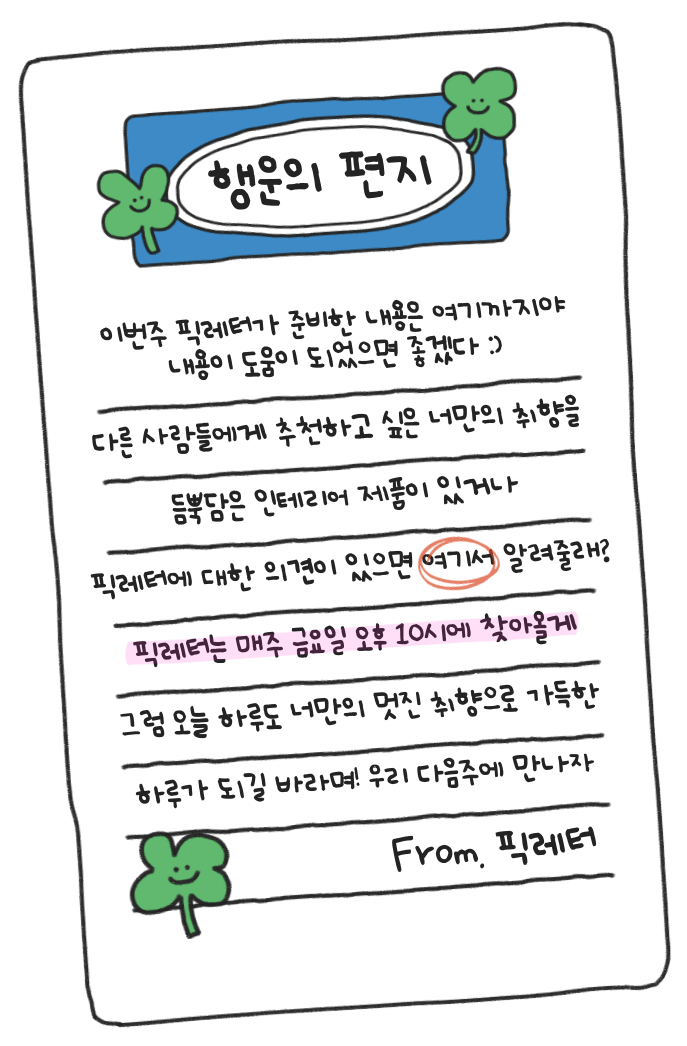 행운의 편지
이번주 픽레터가 준비한 내용은 여기까지야
내용이 도움이 되었으면 좋겠다 :)
다른 사람들에게 추천하고 싶은 너만의 취향을
듬뿍담은 인테리어 제품이 있거나
픽레터에 대한 의견이 있으면 여기서 알려줄래?
픽레터는 매주 금요일 오후 10시에 찾아올게
그럼 오늘 하루도 너만의 멋진 취향으로 가득한
하루가 되길 바라며! 우리 다음주에 만나자
From. 픽레터